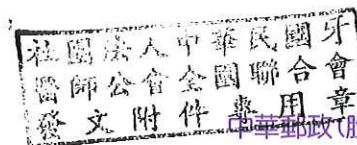 社團法人中華民國牙
醫師公會全國聯合會
發文附件專用章
中華郵政(